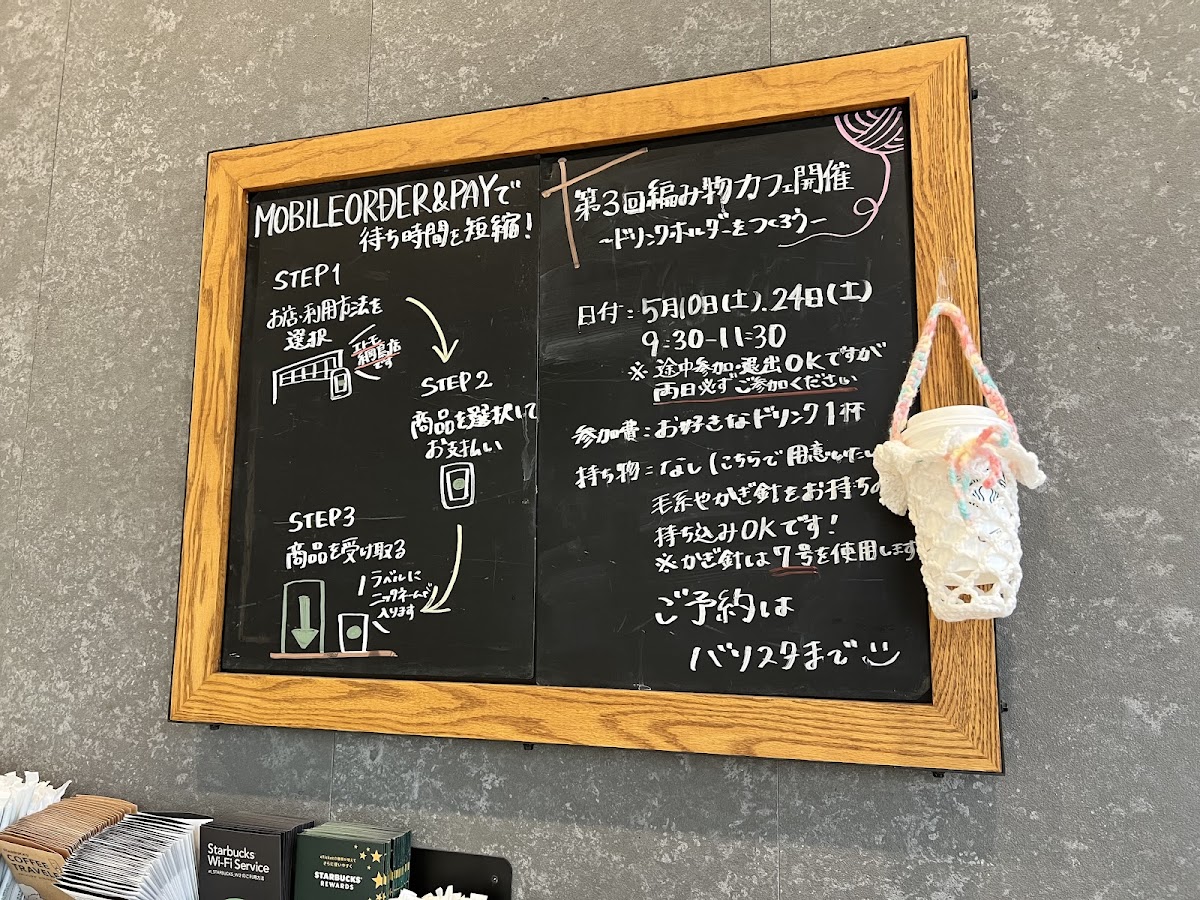 MOBILE ORDER & PAYで
待ち時間を短縮!
STEP1
お店・利用方法を
選択
エトモ
綱島店
です
STEP2
商品を選択して
お支払い
STEP3
商品を受け取る
ラベルに
ニックネームが
入ります
第3回編み物カフェ開催
~ドリンクホルダーをつくろう~
日付:5月10日(土).24日(土)
9:30-11:30
※途中参加・退出OKですが
両日必ずご参加ください
参加費:お好きなドリンク1杯
持ち物:なし(こちらで用意いたし
毛糸やかぎ針をお持ちの
持ち込みOKです!
※かぎ針は7号を使用します
ご予約は
バリスタまで
COFFEE
TRAVELER
Starbucks
Wi-Fi Service
STARBUCKS
REWARDS